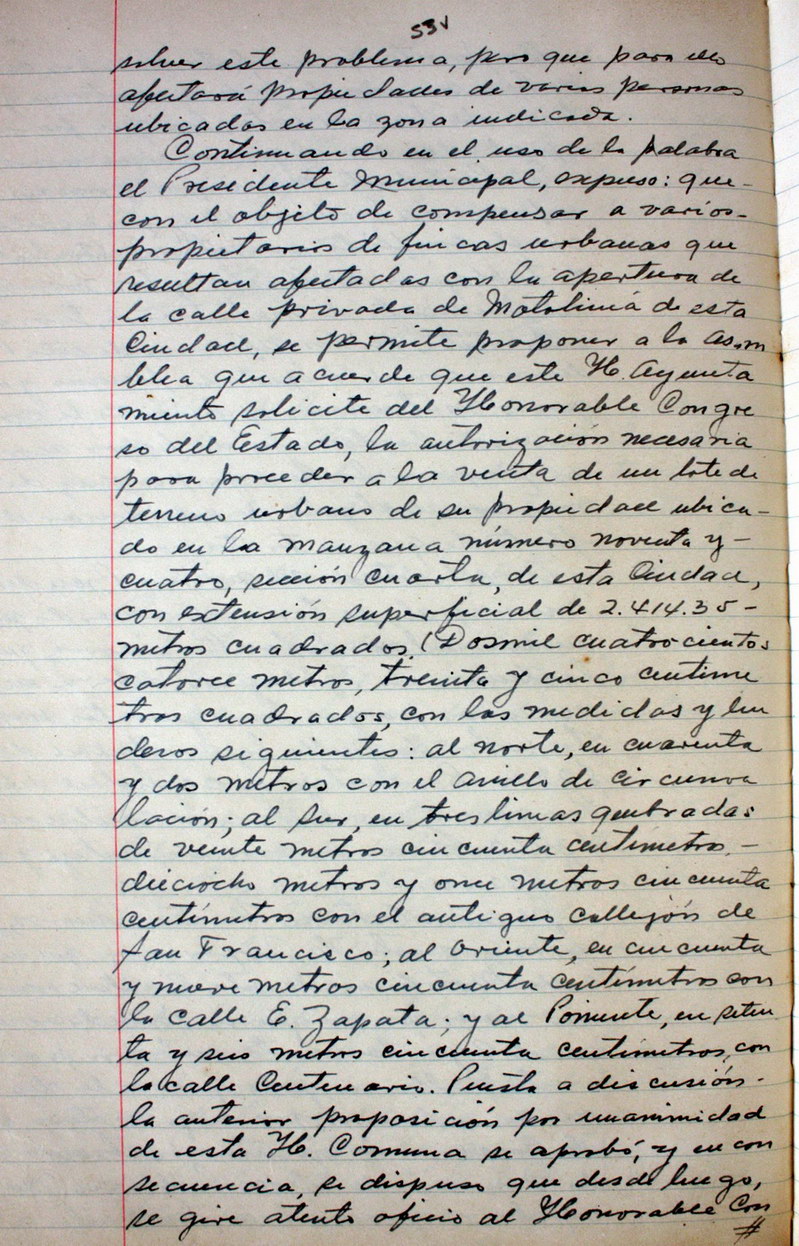 53v
solver este problema, pero que para ello
afectará propiedades de varias personas
ubicadas en la zona indicada.
Continuando en el uso de la palabra
el Presidente Municipal, expuso: que-
con el objeto de compensar a varios-
propietarios de fincas urbanas que
resultan afectadas con la apertura de
la calle privada de Motolinia de esta
Ciudad, se permite proponer a la asam
blea que acuerde que este H. Ayunta
miento solicite del Honorable Congre
so del Estado, la autorización necesaria
para proceder a la venta de un lote de
terreno urbano de su propiedad ubica-
do en la manzana número noventa y-
cuatro, sección cuarta, de esta Ciudad,
con extensión superficial de 2.414.35-
metros cuadrados (Dosmil cuatrocientos
catorce metros, treinta y cinco centíme
tros cuadrados, con las medidas y lin
deros siguientes: al norte, en cuarenta
y dos metros con el anillo de circunva
lación; al Sur, en tres lineas quebradas
de veinte metros cincuenta centímetros,-
dieciocho metros y once metros cincuenta
centímetros con el antiguo callejón de
San Francisco; al Oriente, en cincuenta
y nueve metros cincuenta centímetros con
la calle E. Zapata; y al Poniente, en seten
ta y seis metros cincuenta centímetros, con
la calle Centenario. Puesta a discusión-
la anterior proposición por unanimidad
de esta H. Comuna se aprobó, y en con
secuencia, se dispuso que desde luego,
se gire atento oficio al Honorable Con
#